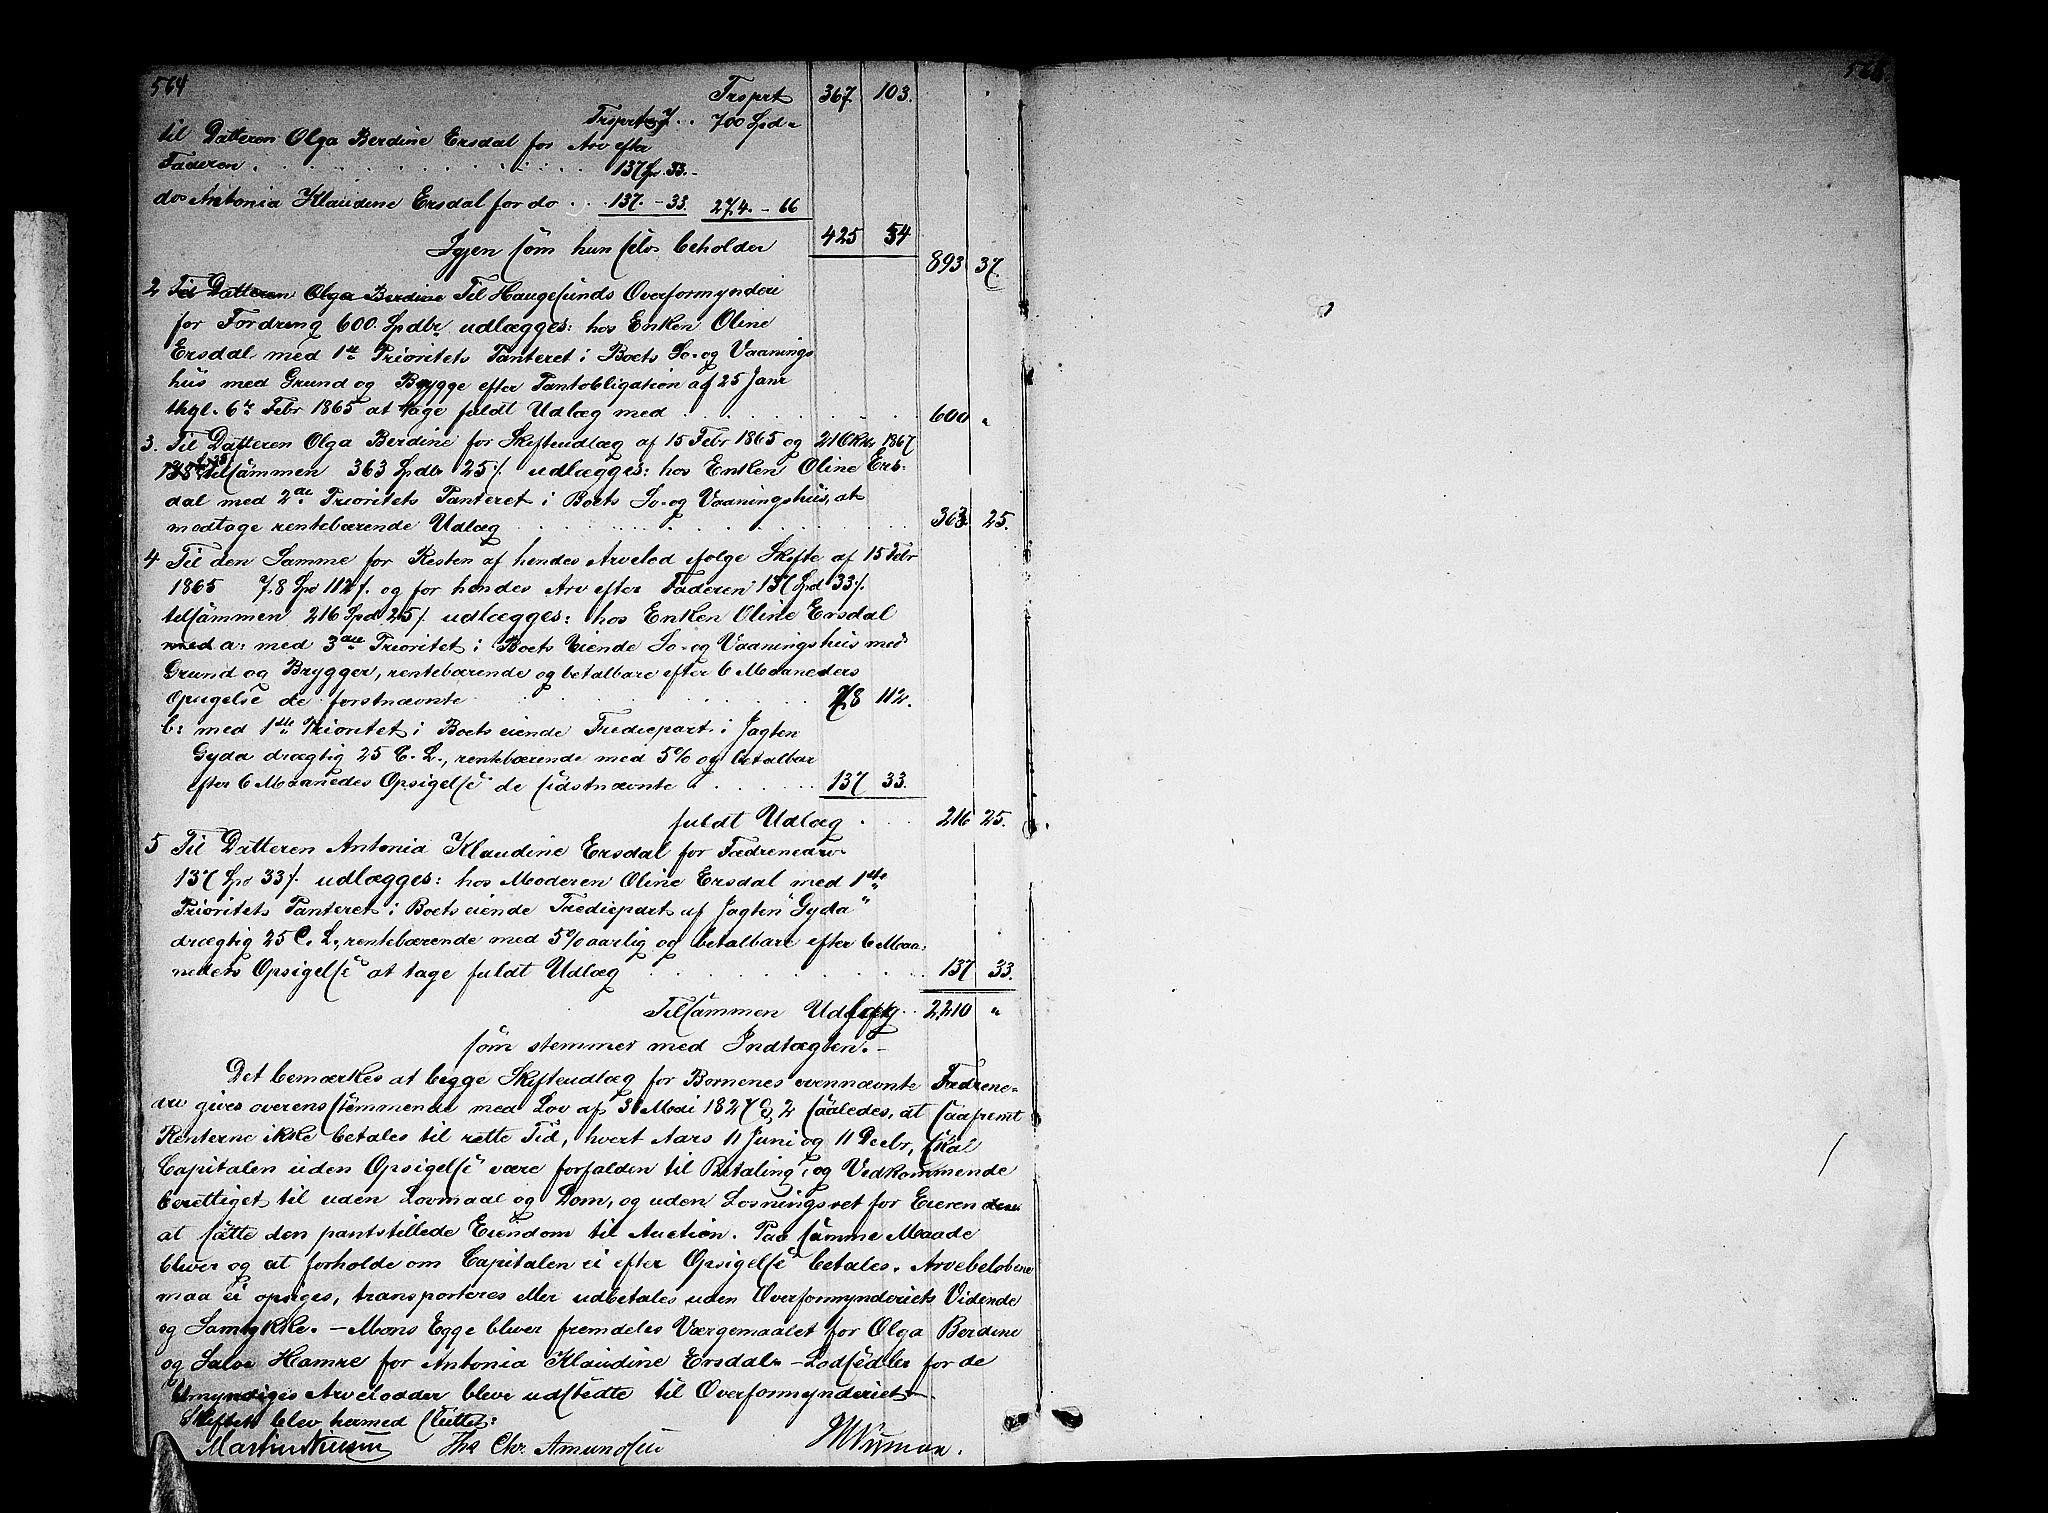 564
565
Trsprt 367. 103.
Trsprt . . 700 Spd
til Datteren Olga Berdine Ersdal for Arv efter
Faderen . . . 137 Sp. 33.-
do Antonia Klaudine Ersdal for do . . 137. - 33. 274. - 66
425 54
Igjen som hun selv beholder 893 37.
2 Til Datteren Olga Berdine Til Haugesunds Overformynderi
for Fordring 600. Spdlr udlægges: hos Enken Oline
Ersdal med 1ste Prioritets Panteret i Boets Sø- og Vaanings
hus med Grund og Brygge efter Pantobligation af 25 Janr
thgl. 6te Febr 1865 at tage fuldt Udlæg med . . . 600 "
3. Til Datteren Olga Berdine for Skifteudlæg af 15 Febr 1865 og 21 Oktr 1867
tilsammen 363 Spdlr 25 /. udlægges: hos Enken Oline Ers-
dal med 2den Prioritets Panteret i Boets Sø- og Vaaningshus, at
modtage rentebærende Udlæg . . . 363 25.
4 Til den Samme for Resten af hendes Arvelod ifølge Skifte af 15 Febr
1865 78 Sp 112 /. og for hendes Arv efter Faderen 137 Spd 33 /.
tilsammen 216 Spd 25 /. udlægges: hos Enken Oline Ersdal
med a: med 3die Prioritet i Boets Eiende Sø- og Vaaningshus med
Grund og Brygger, rentebærende og betalbare efter 6 Maaneders
Opsigelse de førstnævnte . . . 78 112.
b: med 1ste Prioritet i Boets eiende Trediepart i Jagten
Gyda drægtig 25 C. L., rentebærende med 5% og betalbar
efter 6 Maaneders Opsigelse de sidstnævnte . . . 137 33.
fuldt Udlæg . . 216 25.
5 Til Datteren Antonia Klaudine Ersdal for Fædrenearv
137 Sp 33 /. udlægges: hos Moderen Oline Ersdal med 1ste
Prioritets Panteret i Boets eiende Trediepart af Jagten "Gyda"
drægtig 25 C. L., rentebærende med 5% aarlig og betalbare efter 6 Maa-
neders Opsigelse at tage fuldt Udlæg . . . 137 33.
Tilsammen Udlæg . . 2210 "
som stemmer med Indtægten. -
Det bemærkes at begge Skifteudlæg for Børnenes ovennævnte Fædrene-
arv gives overensstemmende med Lov af 31 Mai 1827 § 2 saaledes, at saafremt
Renterne ikke betales til rette Tid, hvert Aars 11 Juni og 11 Decbr, skal
Capitalen uden Opsigelse være forfalden til Betaling, og Vedkommende
berettiget til uden Lovmaal og Dom, og uden Løsningsret for Eieren
at sætte den pantstillede Eiendom til Auction. Paa samme Maade
bliver og at forholde om Capitalen ei efter Opsigelse betales. Arvebeløbene
maa ei opsiges, transporteres eller udbetales uden Overformynderiets Vidende
og Samtykke. - Mons Egge bliver fremdeles Værgemaalet for Olga Berdine
og Salve Hamre for Antonia Klaudine Ersdal. - Lodsedler for de
Umyndiges Arvelodder bleve udstedte til Overformynderiet -
Skiftet blev hermed sluttet:
Martin Nielsen Ths Chr. Amundsen